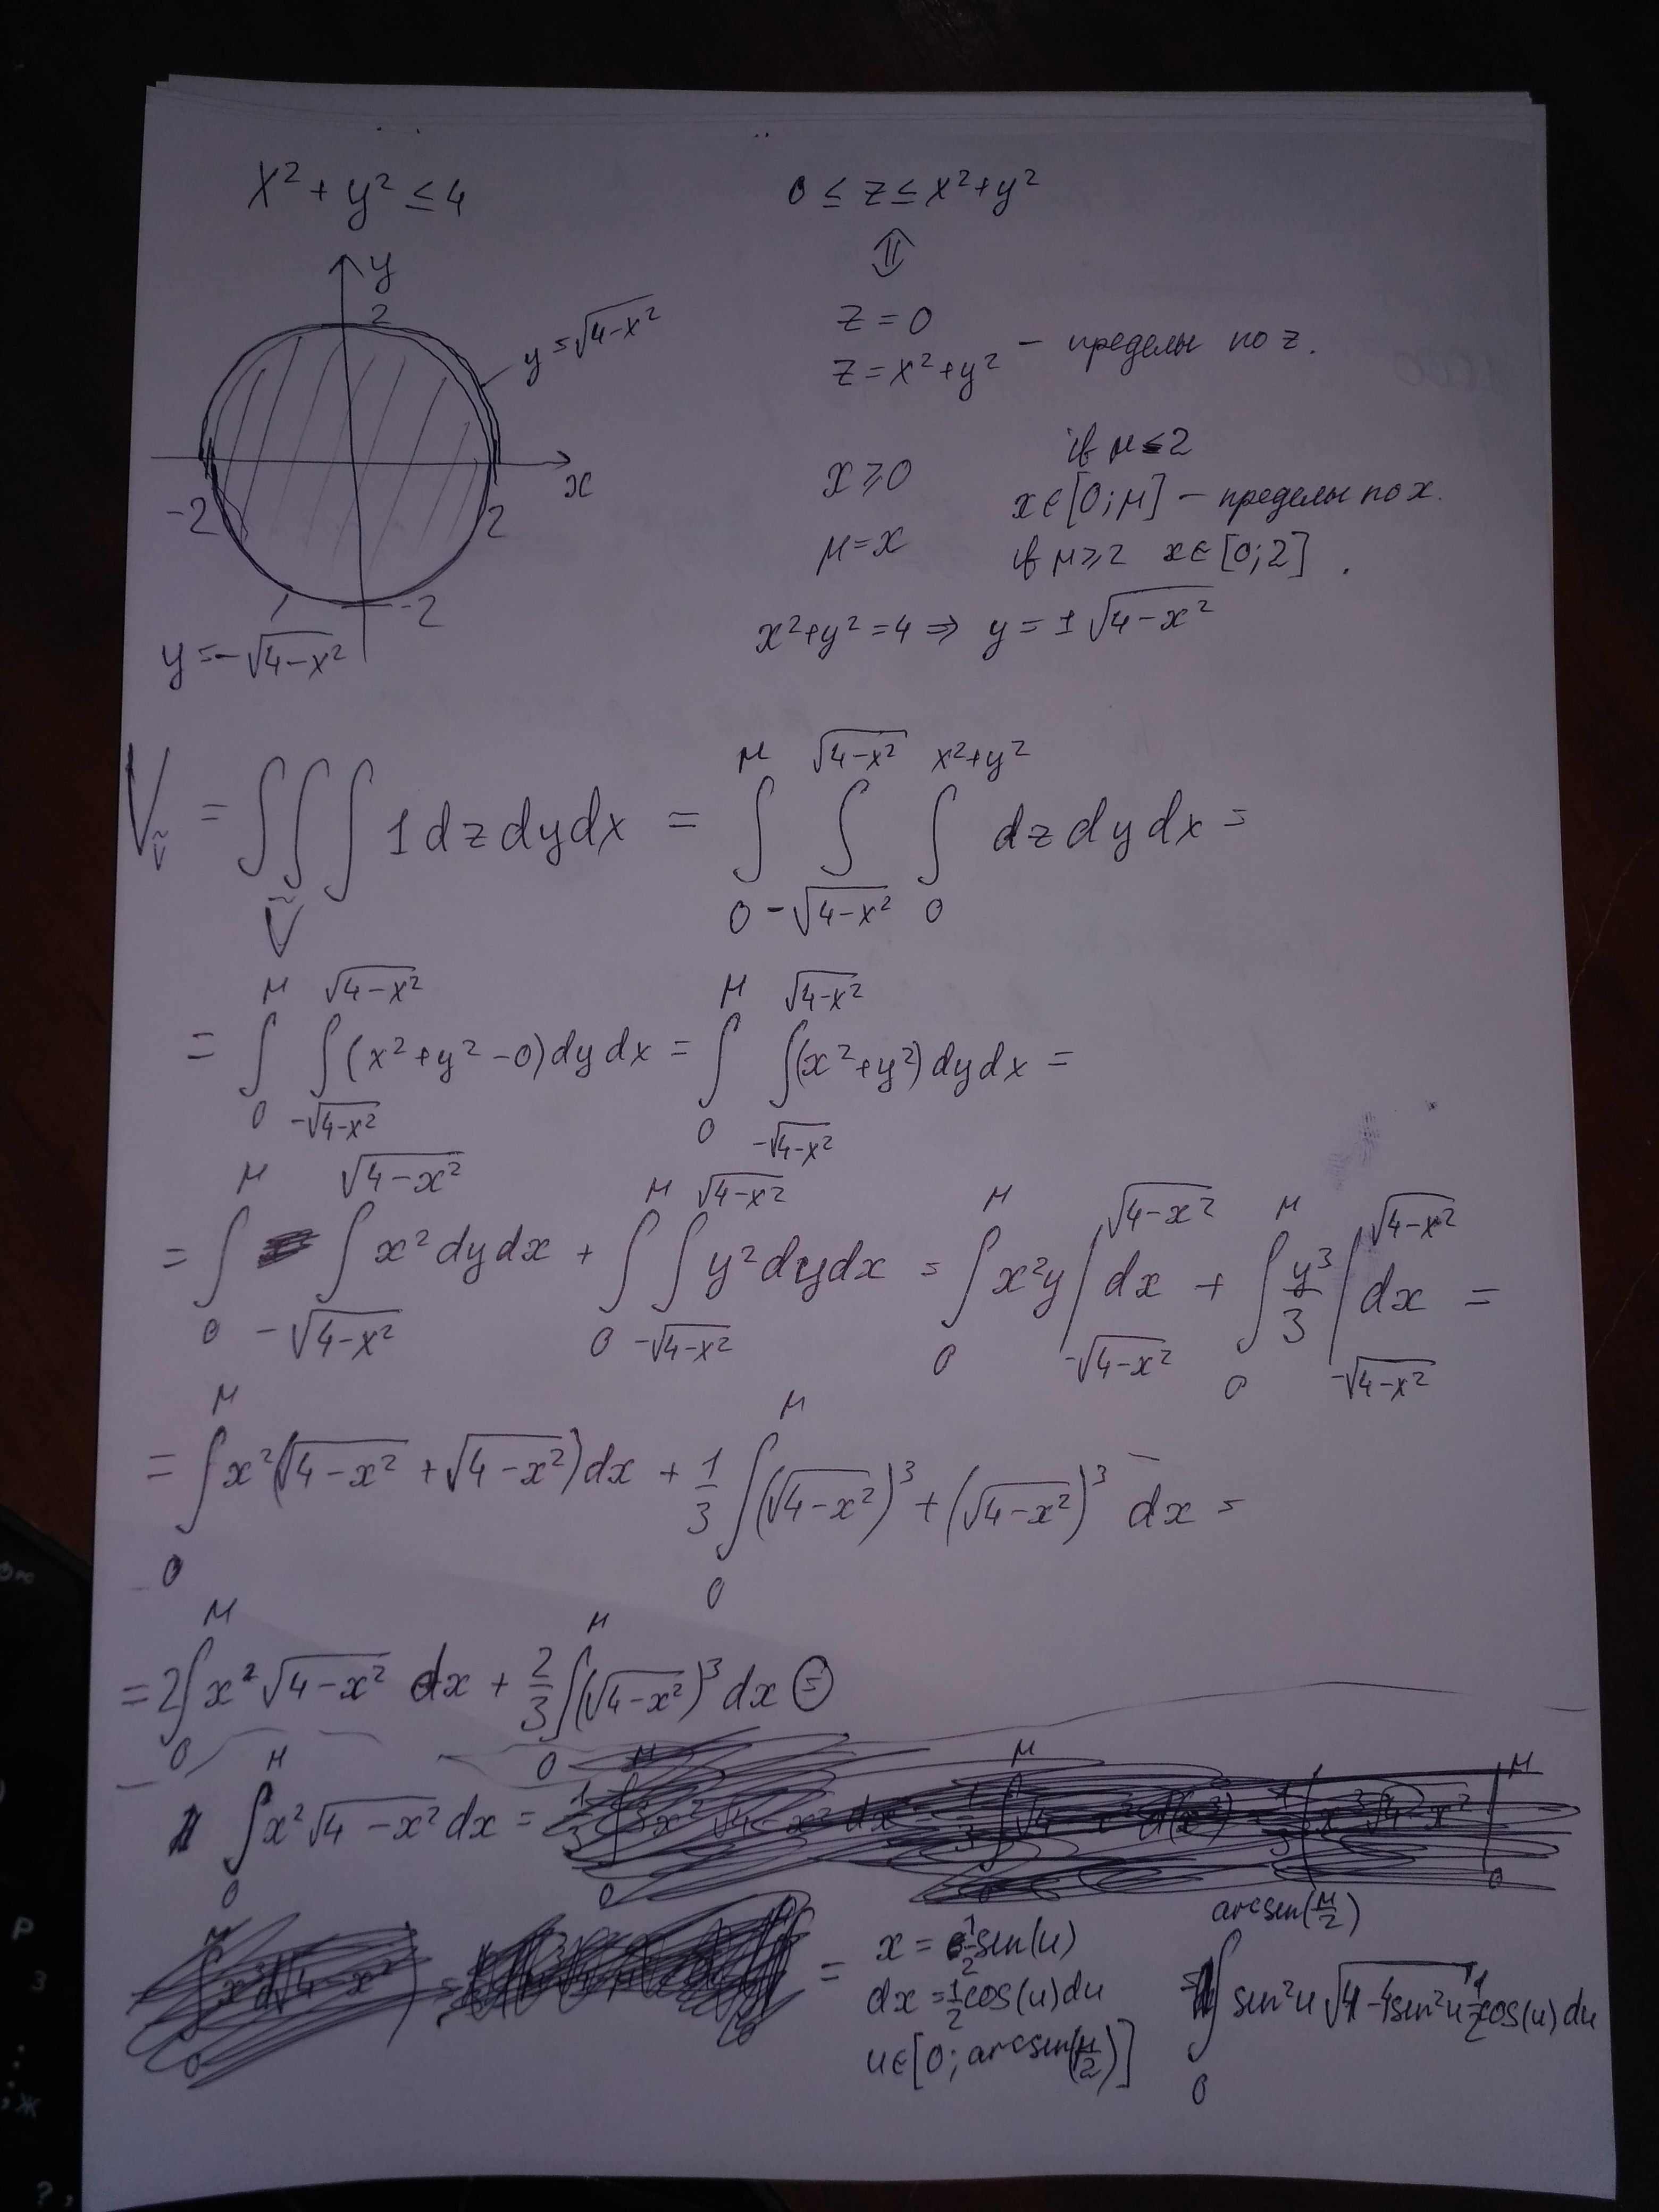 x² + y² ≤ 4
0 ≤ z ≤ x²+y²
⇕
y
2
y = √(4-x²)
z = 0
z = x²+y² - пределы по z.
-2
2
x
-2
y = -√(4-x²)
x ⩾ 0
if μ ≤ 2
x ∈ [0; μ] - пределы по x.
μ = x
if μ ⩾ 2 x ∈ [0; 2].
x²+y² = 4 ⇒ y = ± √(4-x²)
V_Ṽ = ∫∫∫_Ṽ 1 dz dy dx = ∫_0^μ ∫_{-√(4-x²)}^{√(4-x²)} ∫_0^{x²+y²} dz dy dx =
= ∫_0^μ ∫_{-√(4-x²)}^{√(4-x²)} (x²+y²-0) dy dx = ∫_0^μ ∫_{-√(4-x²)}^{√(4-x²)} (x²+y²) dy dx =
= ∫_0^μ ∫_{-√(4-x²)}^{√(4-x²)} x² dy dx + ∫_0^μ ∫_{-√(4-x²)}^{√(4-x²)} y² dy dx = ∫_0^μ x²y |_{-√(4-x²)}^{√(4-x²)} dx + ∫_0^μ y³/3 |_{-√(4-x²)}^{√(4-x²)} dx =
= ∫_0^μ x²(√(4-x²) + √(4-x²)) dx + 1/3 ∫_0^μ (√(4-x²))³ + (√(4-x²))³ dx =
= 2∫_0^μ x² √(4-x²) dx + 2/3 ∫_0^μ (√(4-x²))³ dx ⊜
∫_0^μ x² √(4-x²) dx =
= x = 1/2 sen(u)
dx = 1/2 cos(u) du
u ∈ [0; arcsen(μ/2)]
= ∫_0^{arcsen(μ/2)} sen²u √(4-4sen²u) 1/2 cos(u) du